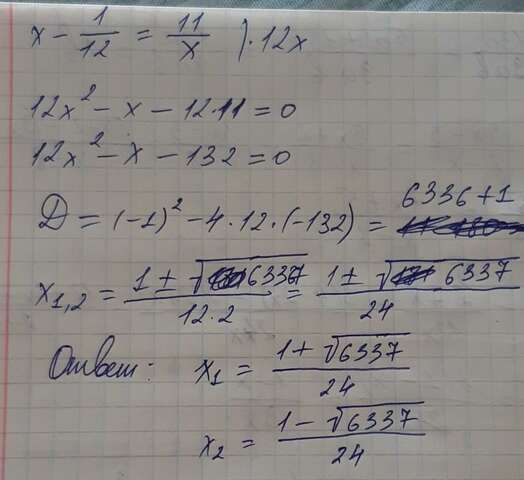 x - 1/12 = 11/x ) · 12x
12x² - x - 12·11 = 0
12x² - x - 132 = 0
D = (-1)² - 4·12·(-132) = 6336+1
x₁,₂ = (1 ± √6337)/(12·2) = (1 ± √6337)/24
Ответ: x₁ = (1 + √6337)/24
x₂ = (1 - √6337)/24